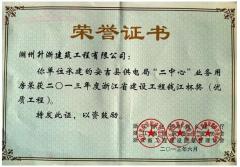 荣誉证书
湖州升浙建筑工程有限公司：
你单位承建的安吉县供电局"二中心"业务用
房荣获二〇一三年度浙江省建设工程钱江杯奖（优
质工程）。
特发此证，以资鼓励。
二〇一三年六月